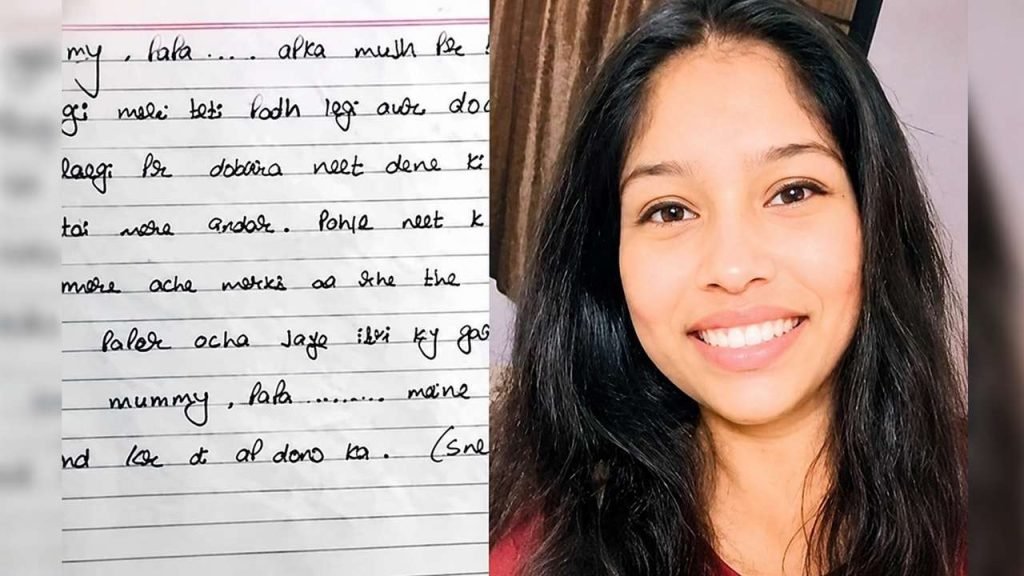 my, papa .... apka mujh pr
gi meri beti padh legi aur doc
laegi pr dobara neet dene ki
tai mere andar. Pahle neet k
mere ache marks aa rhe the
Paper acha jaye iski ky gas
mummy, papa ......... maine
nd kr di ap dono ka. (Sne